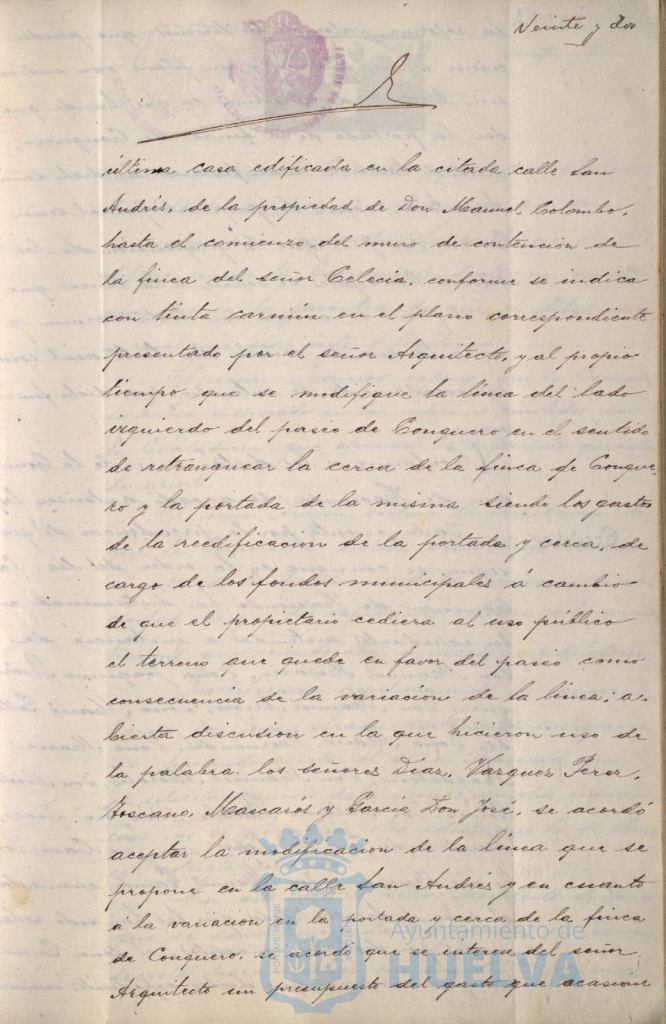 Veinte y dos
última casa edificada en la citada calle San
Andrés, de la propiedad de Don Manuel Colombo,
hasta el comienzo del muro de contencion de
la finca del señor Celecia, conforme se indica
con tinta carmín en el plano correspondiente
presentado por el señor Arquitecto, y al propio
tiempo que se modifique la línea del lado
izquierdo del paseo de Conquero en el sentido
de retranquear la cerca de la finca de Conque-
ro y la portada de la misma siendo los gastos
de la reedificacion de la portada y cerca, de
cargo de los fondos municipales á cambio
de que el propietario cediera al uso público
el terreno que quede en favor del paseo como
consecuencia de la variacion de la línea; a-
bierta discusion en la que hicieron uso de
la palabra los señores Díaz, Vazquez Perez,
Toscano, Mascarós y García Don José, se acordó
aceptar la modificacion de la línea que se
propone en la calle San Andrés y en cuanto
á la variacion en la portada y cerca de la finca
de Conquero, se acordó que se interese del señor
Arquitecto un presupuesto del gasto que ocasione
Ayuntamiento de
HUELVA